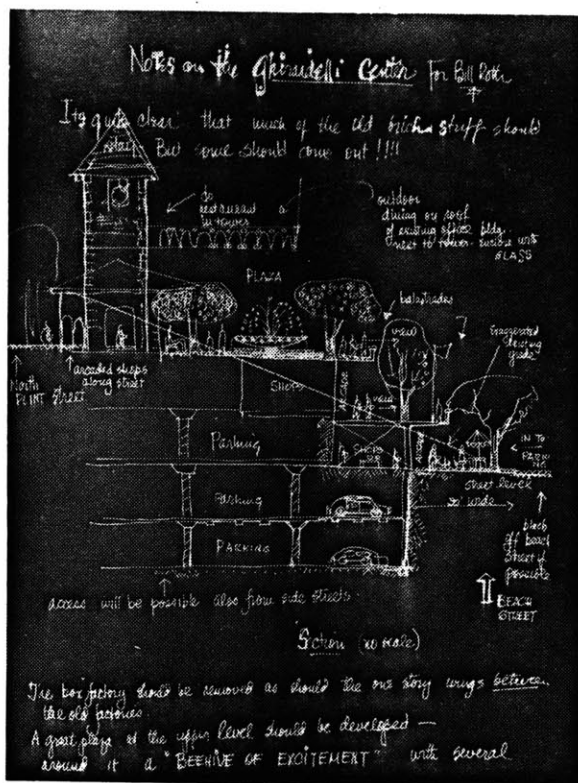 Notes on the Ghirardelli Center for Bill Roth
Its quite clear that much of the old brick stuff should
stay But some should come out !!!!
do
restaurant
in tower
outdoor
dining on roof
of existing office bldg.
next to tower. enclose with
GLASS
PLAZA
balustrades
view
Exaggerated
showing
grade
North
POINT STREET
arcaded shops
along street
SHOPS
ARCADE
view
Parking
Shops
IN TO
PARKING
street level
wide
Parking
PARKING
block
off beach
Street if
possible
BEACH
STREET
access will be possible also from side streets
Section (no scale)
The box factory should be removed as should the one story wings between
the old factories.
A great plaza at the upper level should be developed —
around it a "BEEHIVE OF EXCITEMENT" with several